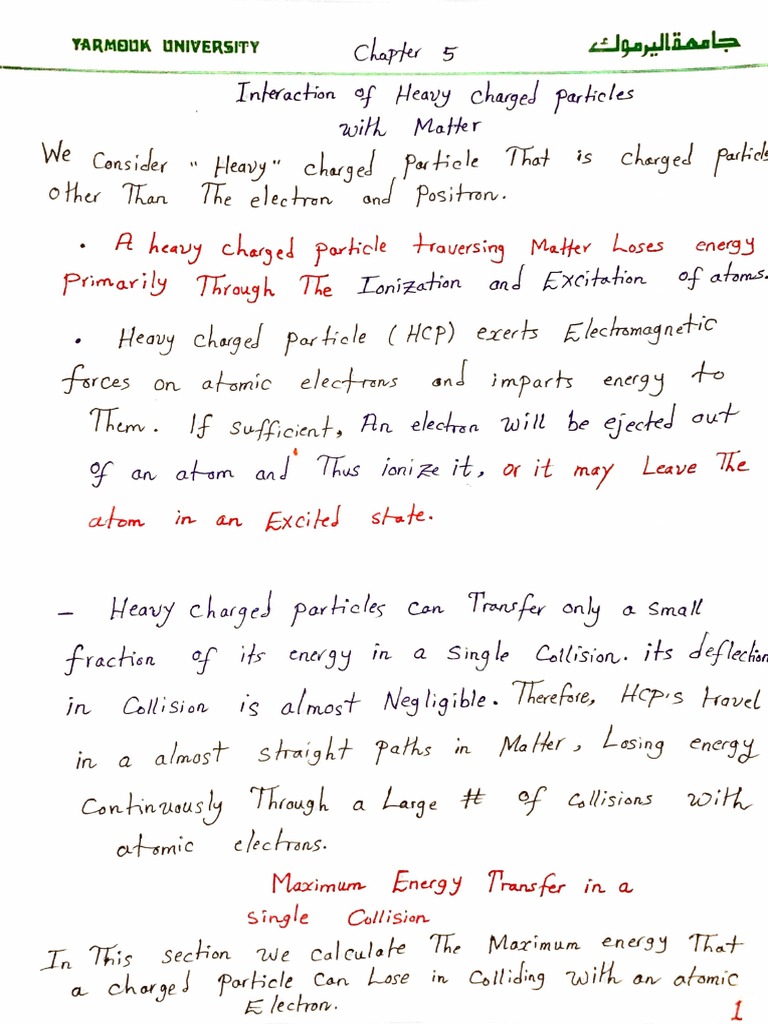 YARMOUK UNIVERSITY
Chapter 5
جامعة اليرموك
Interaction of Heavy Charged particles
with Matter
We Consider "Heavy" charged particle That is charged particle
other Than The electron and Positron.
• A heavy charged particle traversing Matter Loses energy
Primarily Through The Ionization and Excitation of atoms.
• Heavy charged particle (HCP) exerts Electromagnetic
forces on atomic electrons and imparts energy to
Them. If sufficient, An electron will be ejected out
of an atom and Thus ionize it, or it may Leave The
atom in an Excited state.
- Heavy charged particles can Transfer only a small
fraction of its energy in a Single Collision. its deflection
in Collision is almost Negligible. Therefore, HCP's travel
in a almost straight paths in Matter, Losing energy
Continuously Through a Large # of collisions with
atomic electrons.
Maximum Energy Transfer in a
Single Collision
In This section we calculate The Maximum energy That
a charged Particle Can Lose in Colliding with an atomic
Electron.
1